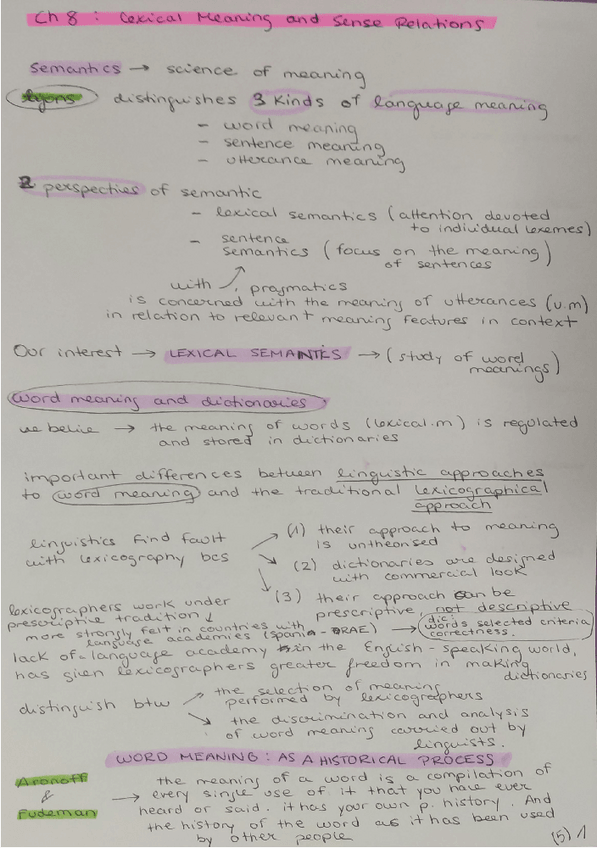 Ch 8 : Lexical Meaning and Sense Relations
Semantics → science of meaning
Lyons distinguishes 3 kinds of language meaning
- word meaning
- sentence meaning
- utterance meaning
2 perspecties of semantic
- lexical semantics (attention devoted
to individual lexemes)
- sentence
semantics (focus on the meaning
of sentences)
with pragmatics
is concerned with the meaning of utterances (u.m)
in relation to relevant meaning features in context
Our interest → LEXICAL SEMANTICS → (study of word
meanings)
Word meaning and dictionaries
we belive → the meaning of words (lexical.m) is regulated
and stored in dictionaries
important differences between linguistic approaches
to word meaning and the traditional lexicographical
approach
linguistics find fault
with lexicography bcs
(1) their approach to meaning
is untheorised
(2) dictionaries are designed
with commercial look
(3) their approach can be
prescriptive not descriptive
lexicographers work under
prescriptive tradition ↓
more strongly felt in countries with
language academies (Spania - RAE) →
dic.
words selected criteria
correctness.
lack of language academy in the English-speaking world,
has given lexicographers greater freedom in making
dictionaries
distinguish btw
the selection of meaning
performed by lexicographers
the discrimination and analysis
of word meaning carried out by
linguists.
WORD MEANING : AS A HISTORICAL PROCESS
Aronoff
&
Fudeman
→ the meaning of a word is a compilation of
every single use of it that you have ever
heard or said. it has your own p. history. And
the history of the word as it has been used
by other people
(5) 1